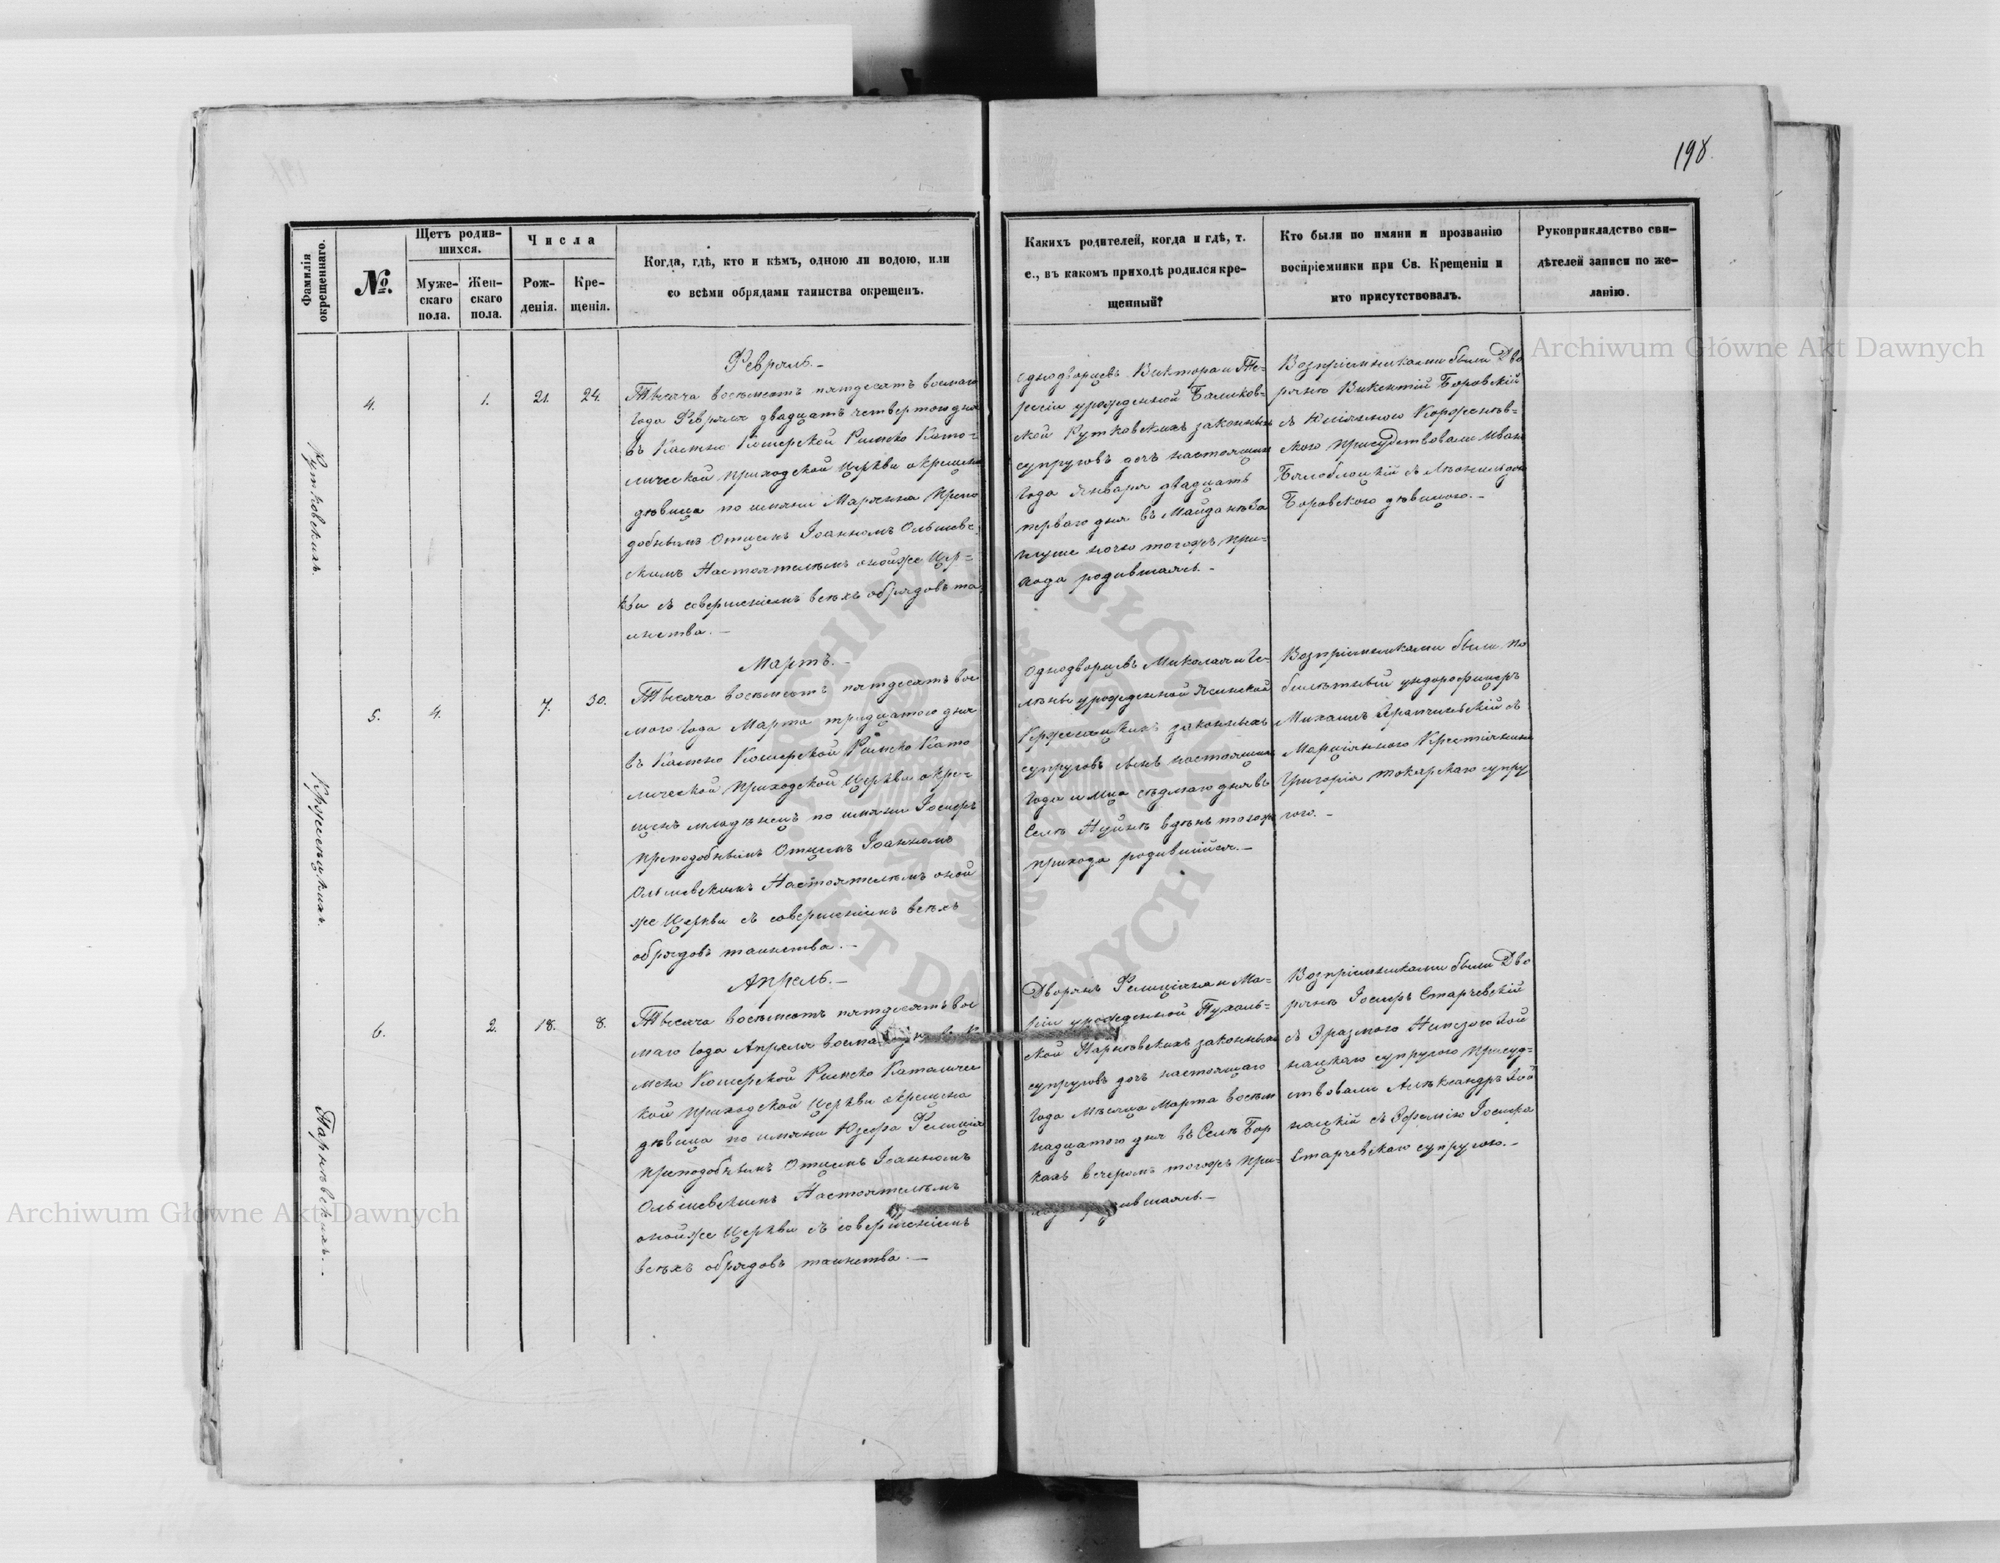 198.
Фамилія окрещеннаго.
№.
Щетъ родив-
шихся.
Муже-
скаго
пола.
Жен-
скаго
пола.
Числа
Рож-
денія.
Кре-
щенія.
Когда, гдѣ, кто и кѣмъ, одною ли водою, или
со всѣми обрядами таинства окрещенъ.
Какихъ родителей, когда и гдѣ, т.
е., въ какомъ приходѣ родился кре-
щенный?
Кто были по имяни и прозванію
воспріемники при Св. Крещеніи и
кто присутствовалъ.
Рукоприкладство сви-
дѣтелей записи по же-
ланію.
Рутковскихъ.
4.
1.
21.
24.
Февраль.—
Тысяча восемьсотъ пятдесятъ восмаго
года Февраля двадцать четвертого дня
въ Каменно Кошерской Римско Като-
лической Приходской Церкви окрещена
дѣвица по имяни Марянна Препо
добнымъ Отцемъ Іоанномъ Ольшев-
скимъ Настоятелемъ оной же Цер-
кви съ совершеніемъ всѣхъ обрядовъ та
инства.—
однодворцевъ Виктора и Те-
ресіи урожденной
ской Рутковскихъ законныхъ
супруговъ дочь настоящаго
года Января двадцать
перваго дня въ
ночю тогожъ при-
хода родившаяся.—
Возпріемниками были Дво
ряне Викентій Боровскій
съ
ского присудствовали Иванъ
съ
Боровского дѣвицою.—
Кржесецкихъ.
5.
4.
7.
30.
Мартъ.—
Тысяча восемьсотъ пятдесятъ вос
мого года Марта тридцатого дня
въ Каменно Кошерской Римско Като
лической Приходской Церкви окре-
щенъ младенецъ по имяни Іосифъ
Преподобнымъ Отцемъ Іоанномъ
Ольшевскимъ Настоятелемъ оной
же Церкви съ совершеніемъ всѣхъ
обрядовъ таинства.—
Однодворцевъ Миколая и Ге-
лены урожденной Ясинской
законныхъ
супруговъ сынъ настоящаго
года и мца седмаго дня въ
Селѣ вдень тогожъ
прихода родившійся.—
Возпріемниками были по
билѣтный ундерофицеръ
Михаилъ съ
Марціанною Крестіянина
Григорія Токарскаго супру
гою.—
Парнѣвскихъ.—
6.
2.
18.
8.
Апрель.—
Тысяча восемьсотъ пятдесятъ вос
маго года Апреля восма дня въ Ка
мено Кошерской Римско Католичес
кой Приходской Церкви окрещена
дѣвица по имяни Юзефа Фелиція
Преподобнымъ Отцемъ Іоанномъ
Ольшевскимъ Настоятелемъ
оной же Церкви съ совершеніемъ
всѣхъ обрядовъ таинства.—
Дворянъ Фелиціяна и Ма-
ріи урожденной Пухаль-
ской Парнѣвскихъ законныхъ
супруговъ дочь настоящаго
года Мѣсяца Марта восем
надцатого дня въ Селѣ Бор
кахъ вечеромъ тогожъ При-
родившаяся.—
Возпріемниками были Дво
ряне Іосифъ Старчевскій
съ
супругою присуд-
ствовали Александръ
съ Іосифа
Старчевскаго супругою.—
Archiwum Główne Akt Dawnych
Archiwum Główne Akt Dawnych
ARCHIWUM GŁÓWNE AKT DAWNYCH